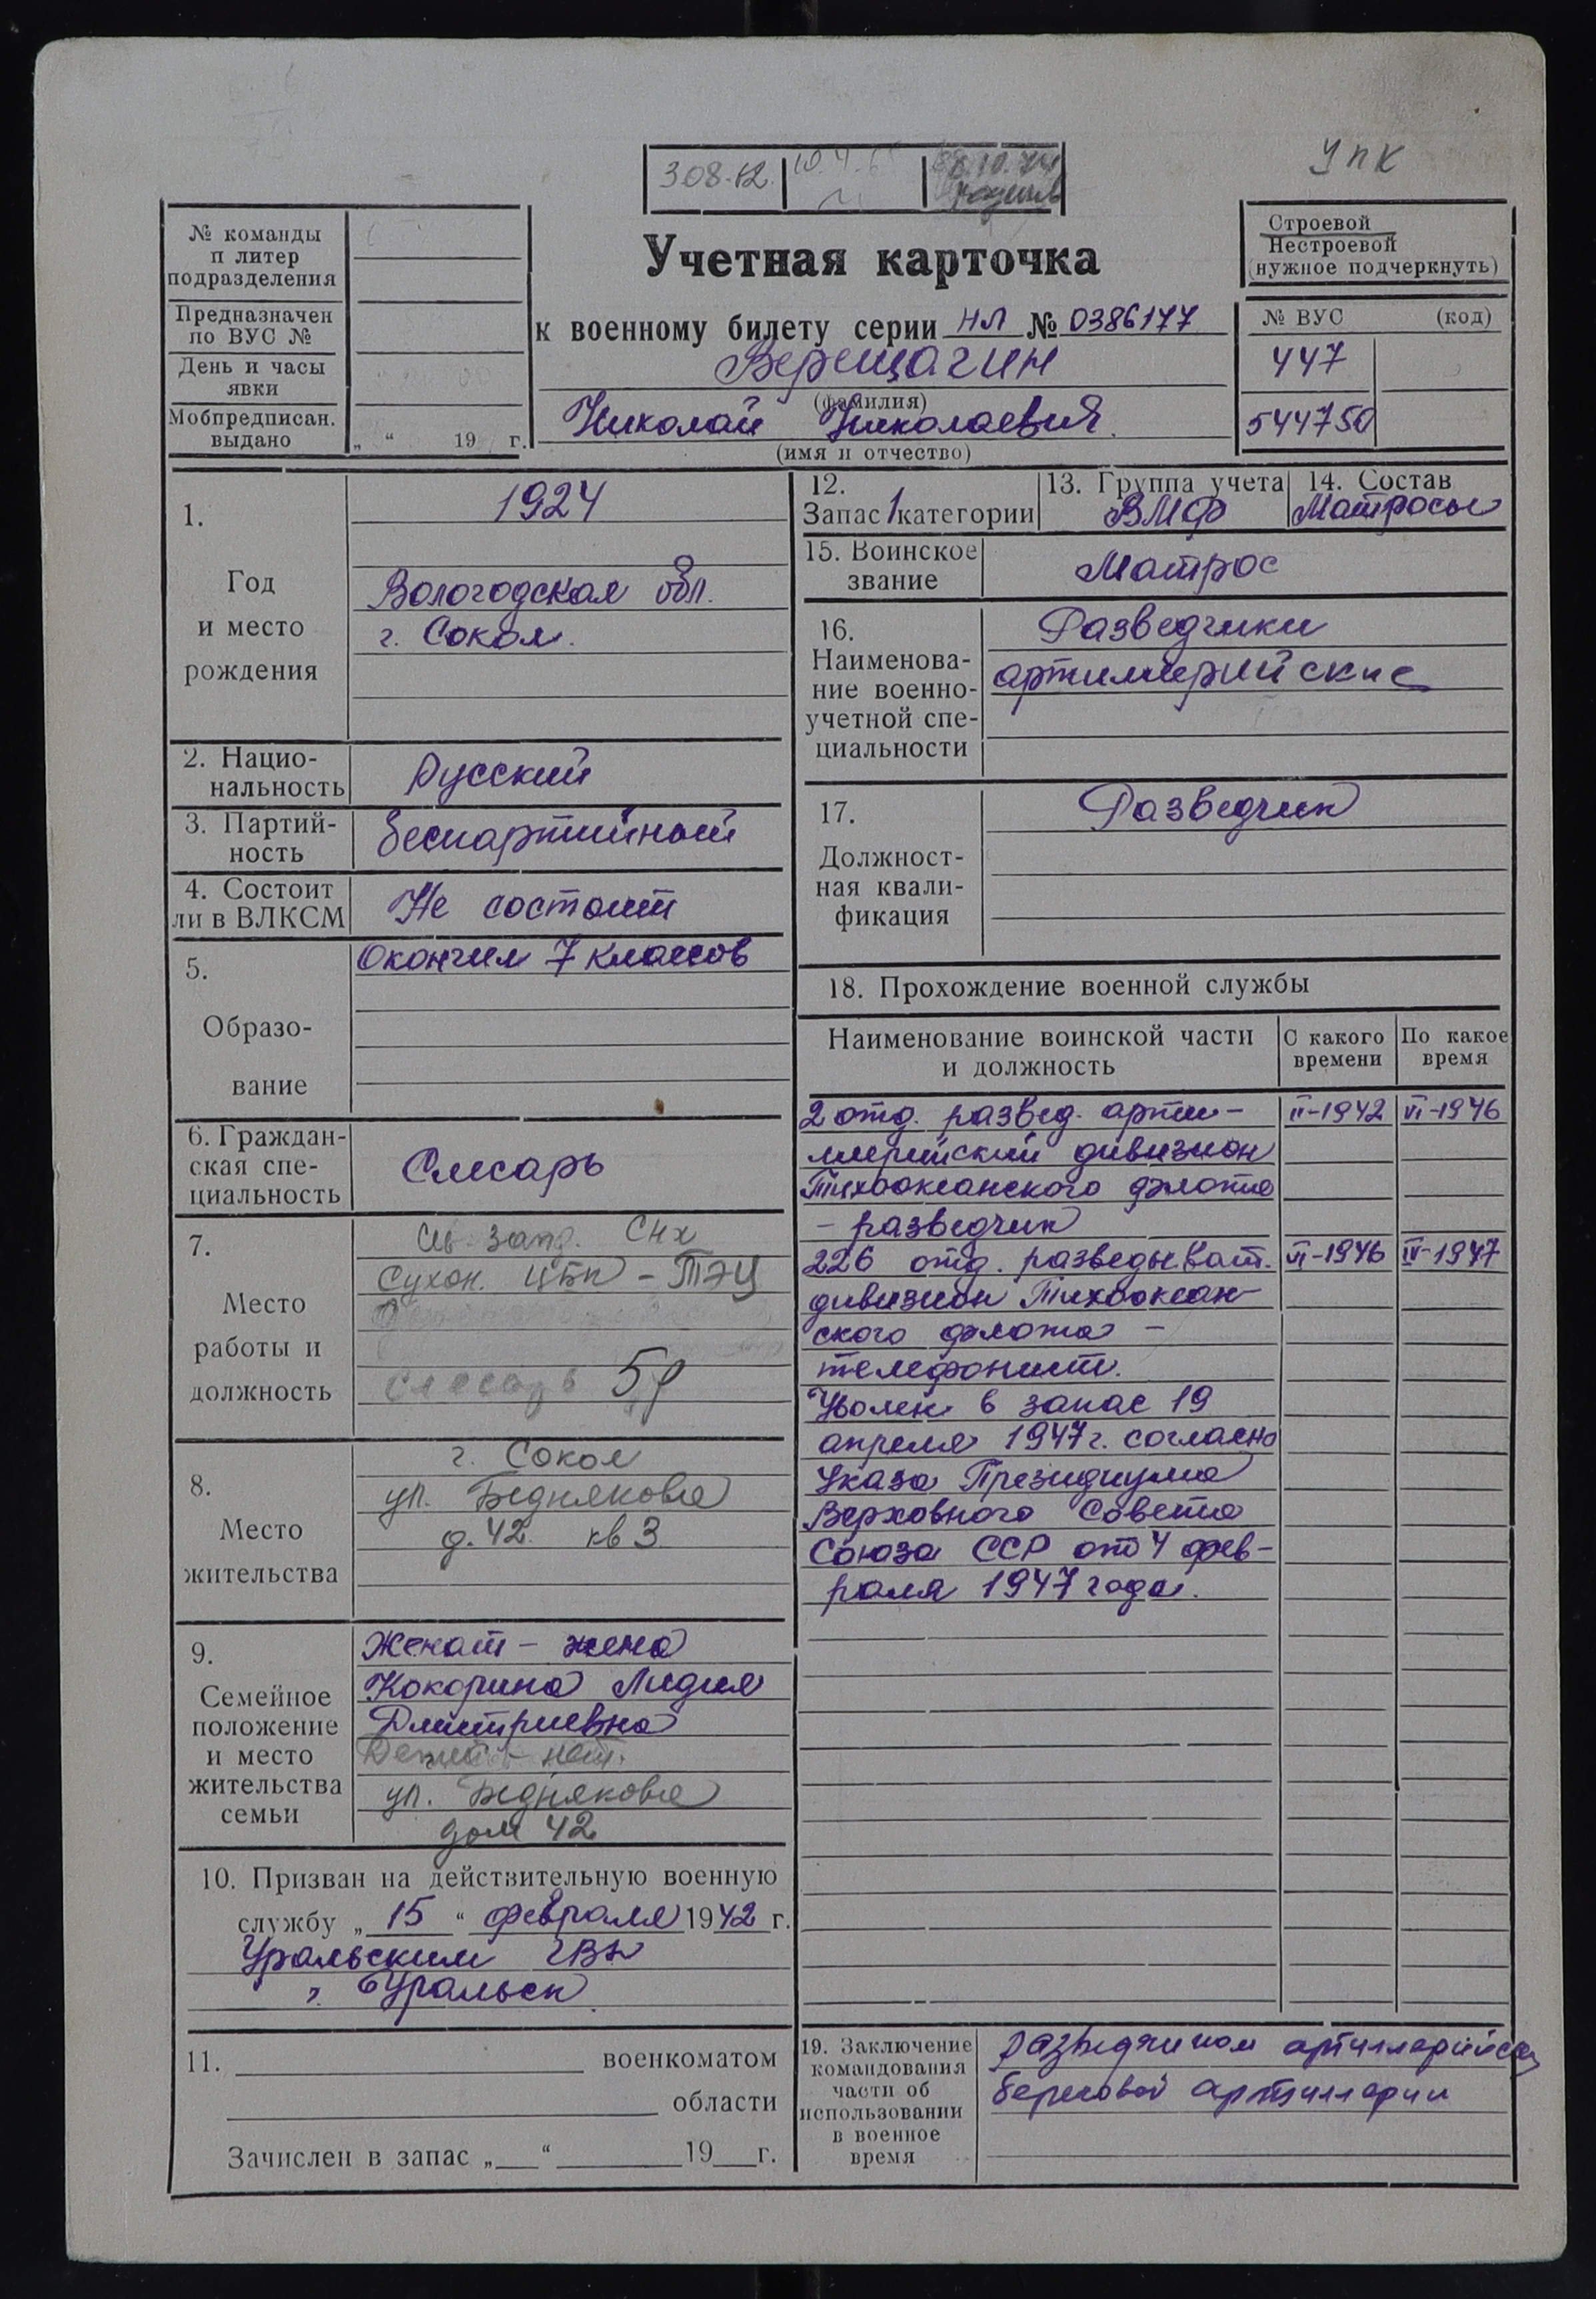 УПК
308-12.
№ команды
п литер
подразделения
Предназначен
по ВУС №
День и часы
явки
Мобпредписан.
выдано
„ “ 19 г.
Учетная карточка
к военному билету серии НЛ № 0386177
Верещагин
(фамилия)
Николай Николаевич.
(имя и отчество)
Строевой
Нестроевой
(нужное подчеркнуть)
№ ВУС (код)
447
544750
1.
Год
и место
рождения
1924
Вологодская обл.
г. Сокол.
2. Нацио-
нальность
Русский
3. Партий-
ность
беспартийный
4. Состоит
ли в ВЛКСМ
Не состоит
5.
Образо-
вание
Окончил 7 классов
6. Граждан-
ская спе-
циальность
Слесарь
7.
Место
работы и
должность
зап. СНХ
Сухон. ЦБК – ТЭЦ
слесарь 5р
8.
Место
жительства
г. Сокол
ул. Беднякова
д. 42. кв 3
9.
Семейное
положение
и место
жительства
семьи
Женат – жена
Кокорина Лидия
Дмитриевна
Детей – нет.
ул. Беднякова
дом 42
10. Призван на действительную военную
службу „ 15 “ февраля 1942 г.
Уральским ГВК
г. Уральск
11. военкоматом
области
Зачислен в запас „ “ 19 г.
12.
Запас 1 категории
13. Группа учета
ВМФ
14. Состав
Матросы
15. Воинское
звание
Матрос
16.
Наименова-
ние военно-
учетной спе-
циальности
Разведчики
артиллерийские
17.
Должност-
ная квали-
фикация
Разведчик
18. Прохождение военной службы
Наименование воинской части
и должность
С какого
времени
По какое
время
2 отд. развед. арти- II-1942 VI-1946
ллерийский дивизион
Тихоокеанского флота
– разведчик
226 отд. разведыват. VI-1946 IV-1947
дивизион Тихоокеан-
ского флота –
телефонист.
Уволен в запас 19
апреля 1947 г. согласно
Указа Президиума
Верховного Совета
Союза ССР от 4 фев-
раля 1947 года.
19. Заключение
командования
части об
использовании
в военное
время
разведчиком
береговой артиллерии